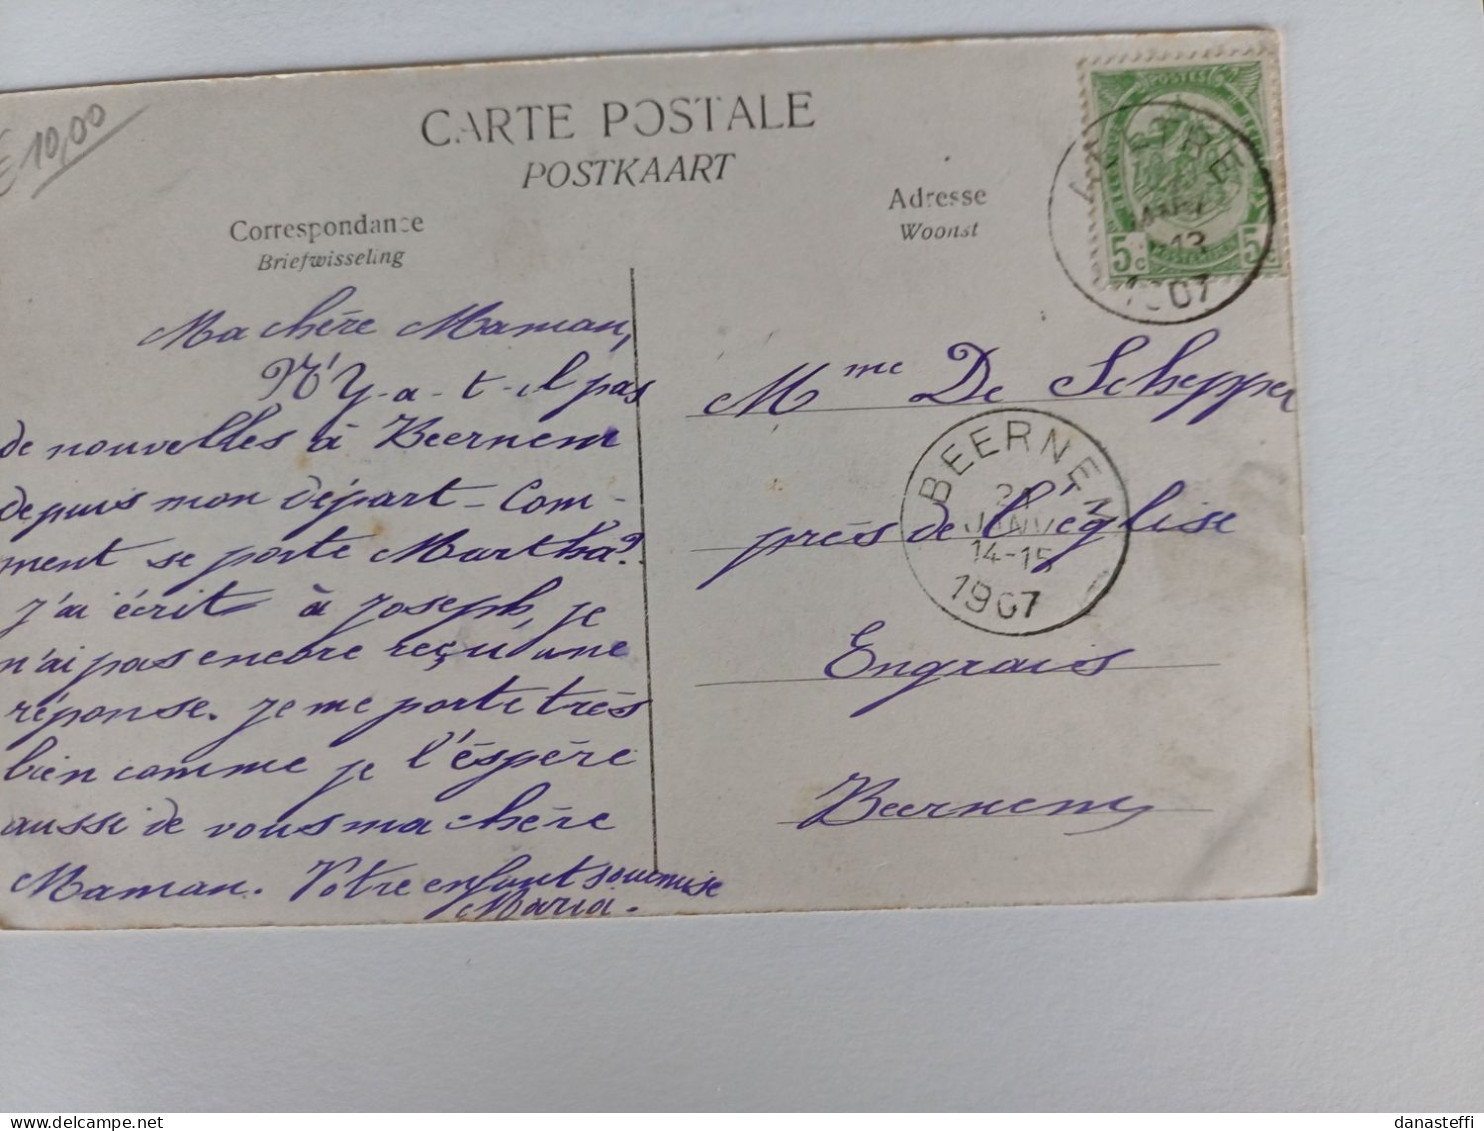 € 10,00
CARTE POSTALE
POSTKAART
Correspondance
Briefwisseling
Adresse
Woonst
POSTES
5c 5c
13
1907
Ma chère Maman,
N'y-a-t-il pas
de nouvelles à Beernem
depuis mon départ - Com-
ment se porte Martha?
J'ai écrit à Joseph, je
n'ai pas encore reçu une
réponse. Je me porte très
bien comme je l'éspère
aussi de vous ma chère
Maman. Votre enfant soumise
Maria.
Mme De Schepper
près de l'église
Engrais
Beernem
BEERNEM
JANV
14-15
1907
danasteffi